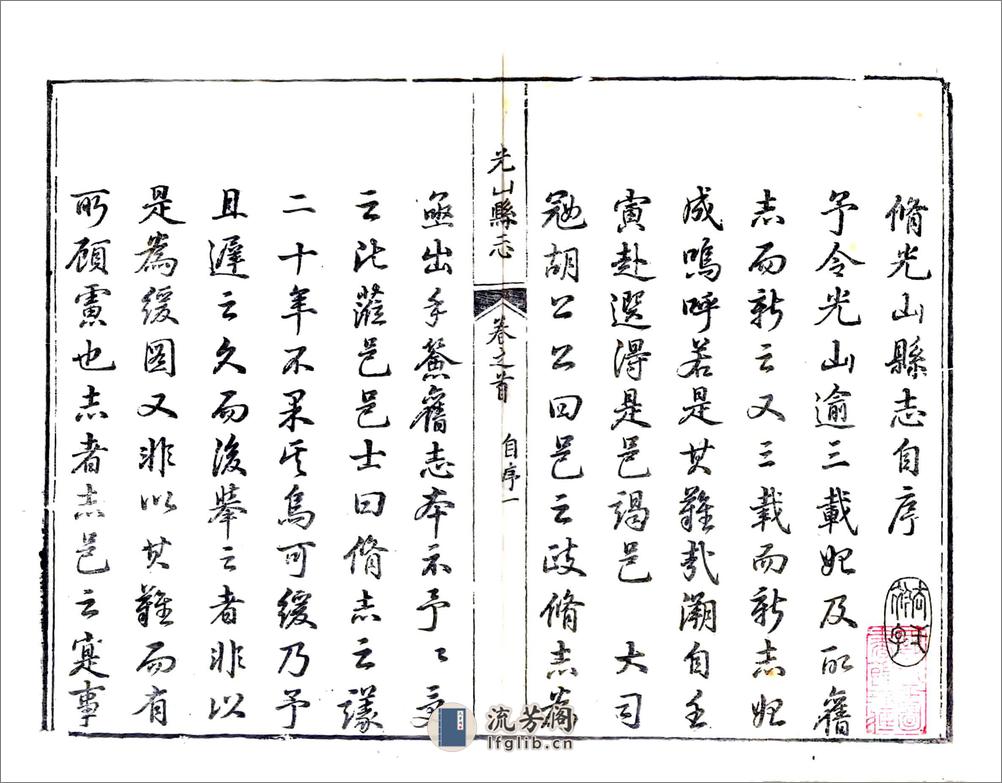 脩光山縣志自序
予令光山逾三載始及取舊
志而新之又三載而新志始
成嗚呼若是其難哉溯自壬
寅赴選得是邑謁邑 大司
寇胡公公曰邑之政脩志
光山縣志 卷之首 自序一
亟出手舊志本示予〻受
之比蒞邑邑士曰脩志之議
二十年不果矣烏可緩乃予
且遲之久而後舉之者非以
是為緩圖又非以其難而有
所顧慮也志者志邑之寔事
流芳阁
lfglib.cn